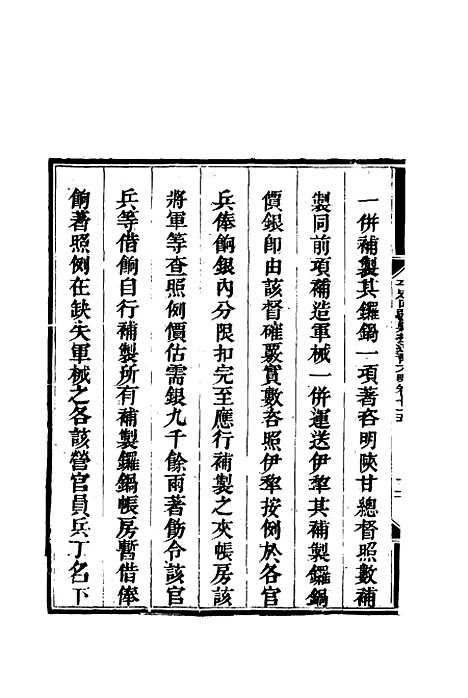 一併補製其鑼鍋一項著咨明陝甘總督照數補
製同前項補造軍械一併運送伊犂其補製鑼鍋
價銀卽由該督確覈實數咨照伊犂按例於各官
兵俸餉銀內分限扣完至應行補製之夾帳房該
將軍等查照例價估需銀九千餘兩著飭令該官
兵等借餉自行補製所有補製鑼鍋帳房暫借俸
餉著照例在缺失軍械之各該營官員兵丁名下